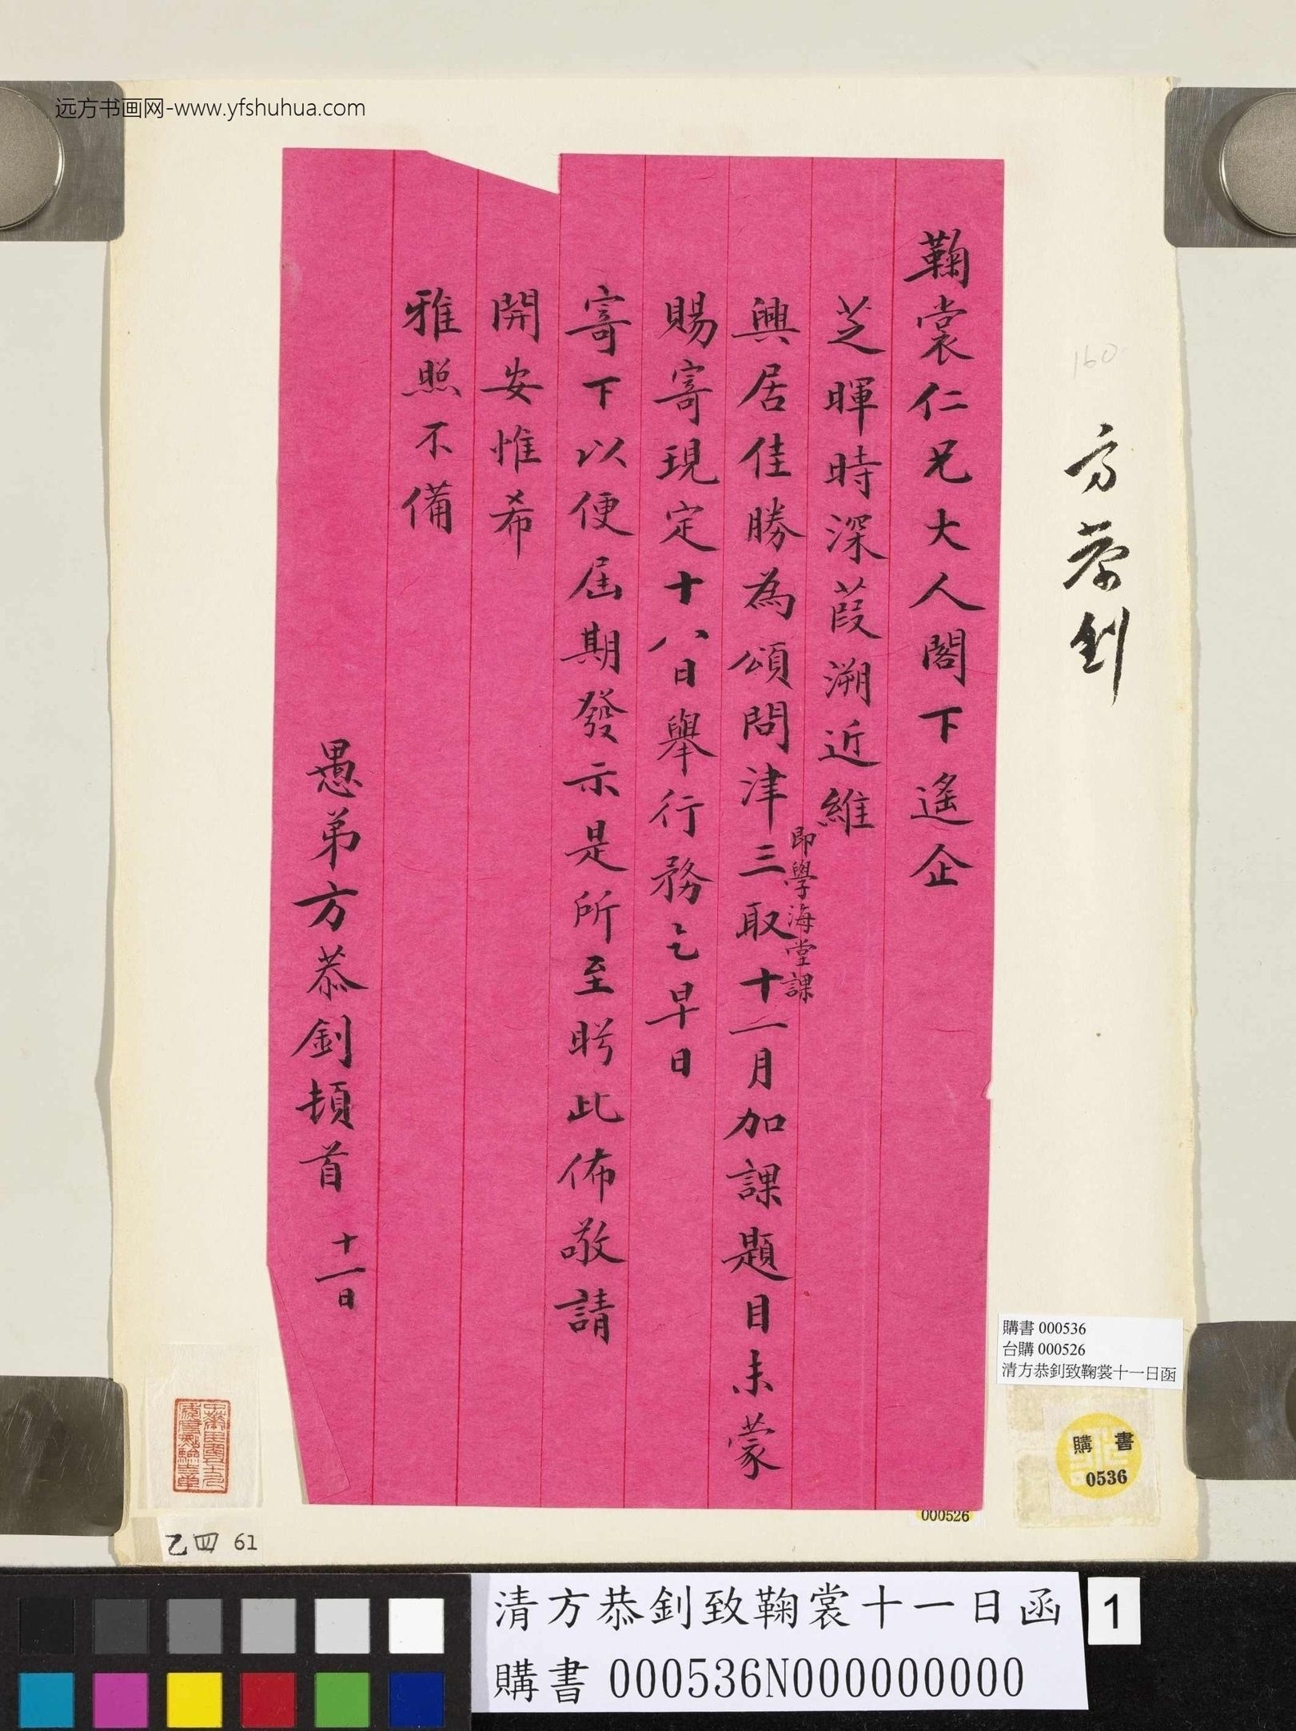 远方书画网-www.yfshuhua.com
鞠裳仁兄大人閣下遙企
芝暉時深葭溯近維
興居佳勝為頌問津三取十一月加課題目未蒙
即學海堂課
賜寄現定十八日舉行務乞早日
寄下以便屆期發示是所至盼此佈敬請
開安惟希
雅照不備
愚弟方恭釗頓首 十一日
160
方恭釗
購書 000536
台購 000526
清方恭釗致鞠裳十一日函
購書
0536
000526
乙四 61
清方恭釗致鞠裳十一日函
購書 000536N000000000
1